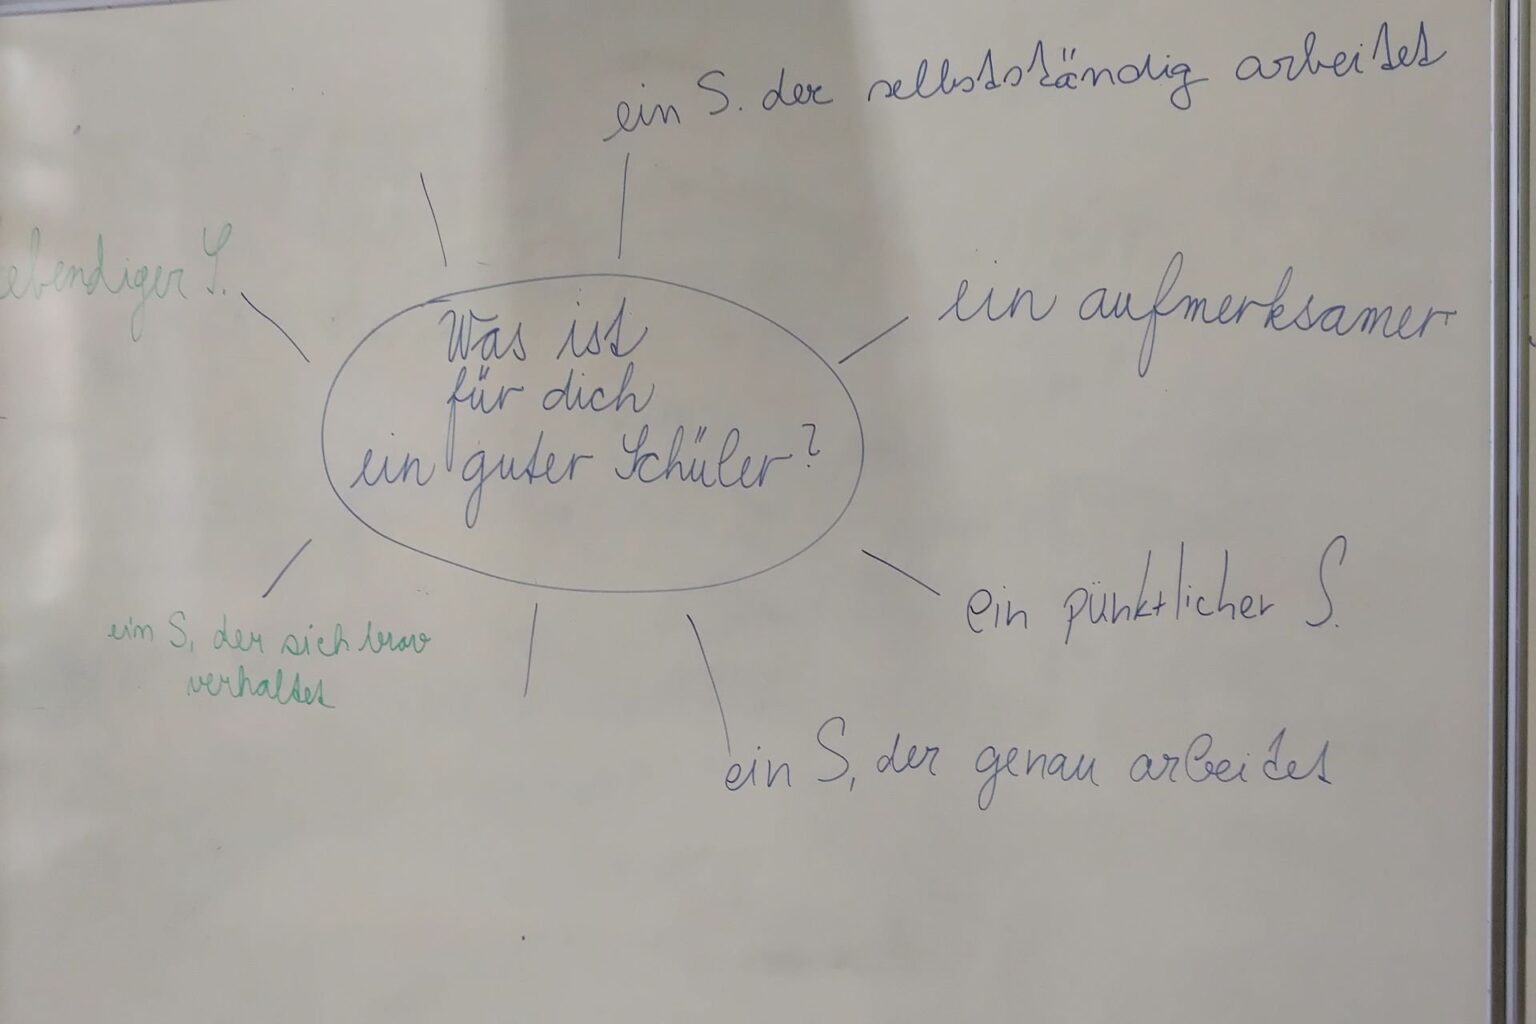 ein S. der selbstständig arbeitet
ebendiger S.
ein aufmerksamer
Was ist
für dich
ein guter Schüler?
ein pünktlicher S.
ein S, der sich brav
verhaltet
ein S, der genau arbeitet